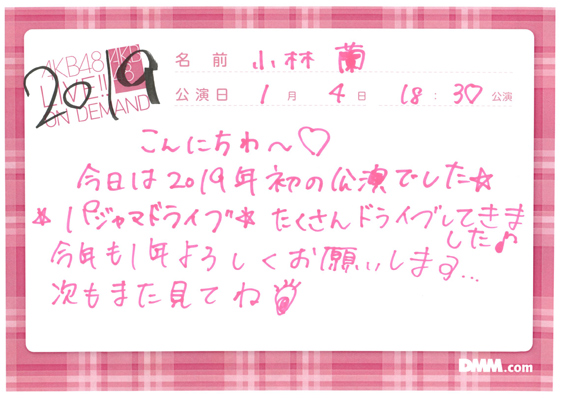 AKB48
LIVE!!
ON DEMAND
AKB
48
2019
名前 小林 蘭
公演日 1月 4日 18:30 公演
こんにちわ~♡
今日は2019年初の公演でした☆
*パジャマドライブ* たくさんドライブしてきま
した♪
今年も1年よろしくお願いします...
次もまた見てね
DMM.com